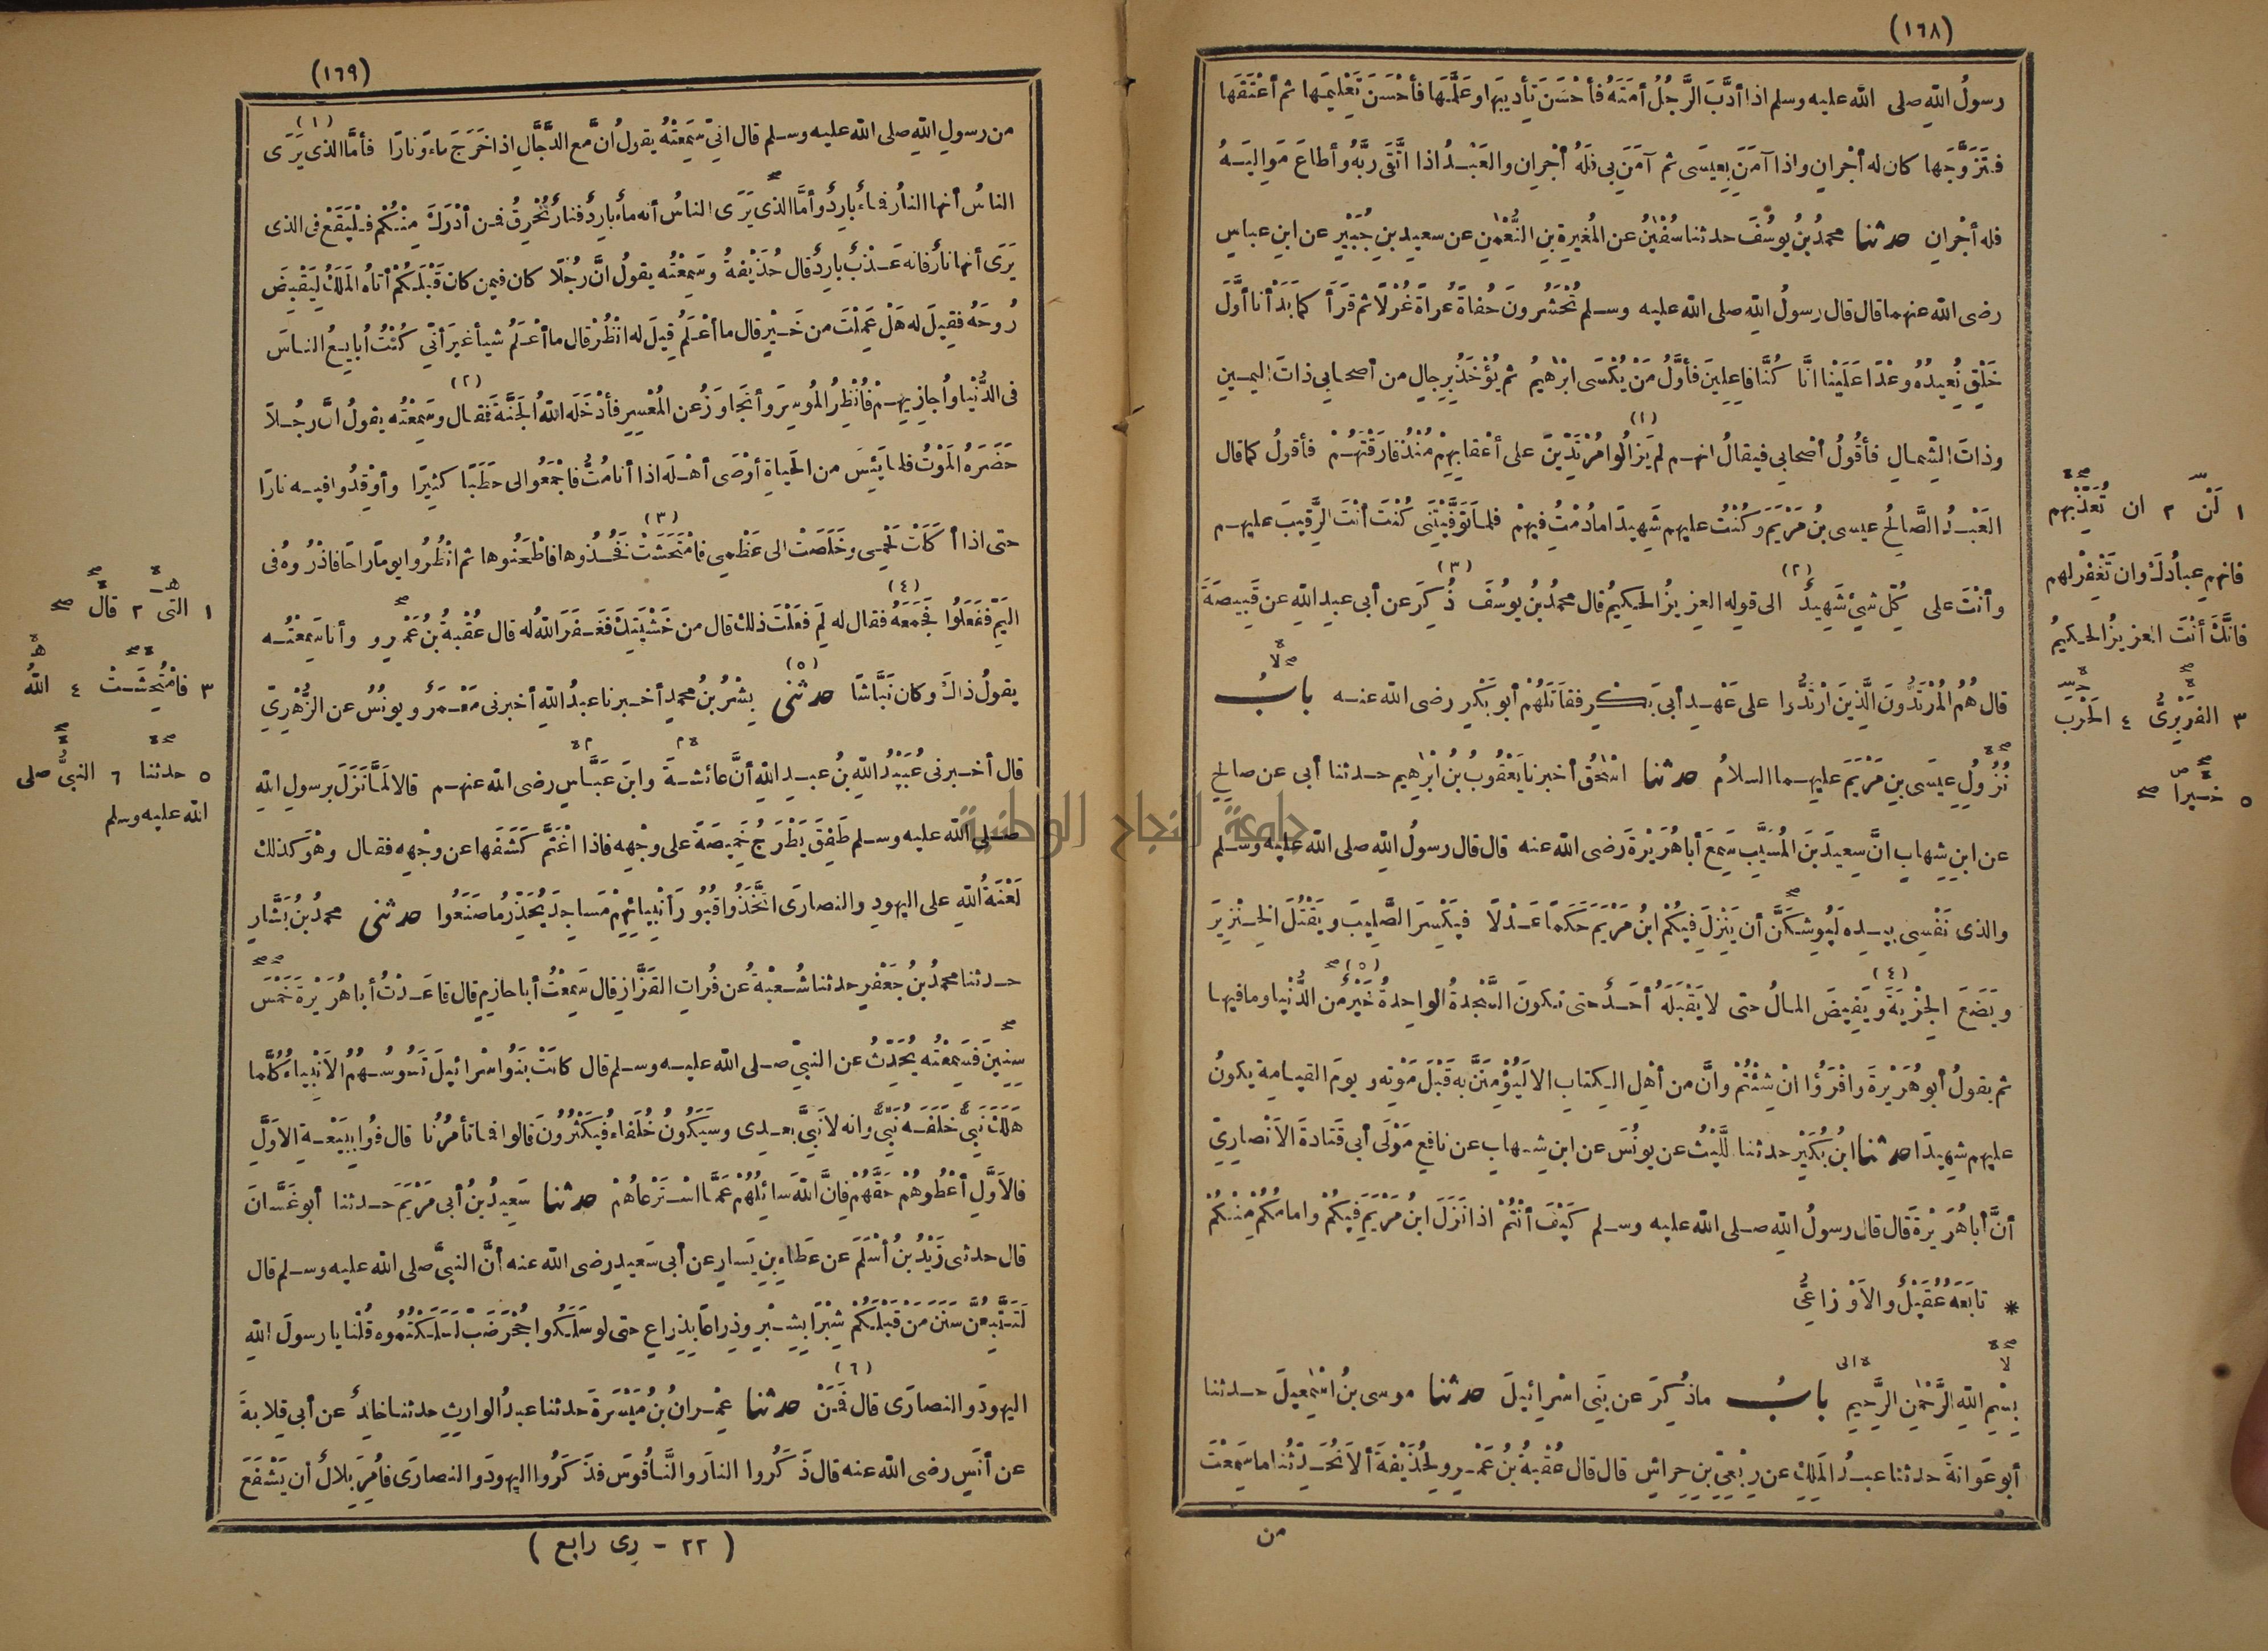 (١٦٨)
رسولُ اللهِ صلى الله عليه وسلم اذا أدَّبَ الرَّجُلُ أمَتَهُ فأحْسَنَ تَأديبَها وعَلَّمَها فأحْسَنَ تَعْليمَها ثم أعْتَقَها
فتَزَوَّجَها كان له أجْرانِ واذا آمَنَ بِعِيسَى ثم آمَنَ بى فلَهُ أجْرانِ والعَبْدُ اذا اتَّقَى رَبَّهُ وأطاعَ مَوالِيَهُ
فله أجْرانِ حدثنا محمدُ بنُ يوسُفَ حدثنا سُفْيٰنُ عن المُغيرةِ بنِ النُّعْمٰنِ عن سعيدِ بنِ جُبَيْرٍ عن ابنِ عباسٍ
رضى الله عنهما قال قال رسولُ اللهِ صلى الله عليه وسلم تُحْشَرُونَ حُفاةً عُراةً غُرْلًا ثم قَرَأَ كما بَدَأْنا أوَّلَ
خَلْقٍ نُعيدُهُ وعْدًا عَلَيْنا انَّا كُنَّا فاعِلِينَ فأوَّلُ مَنْ يُكْسَى ابْرٰهيمُ ثم يُؤْخَذُ بِرِجالٍ من أصحابى ذاتَ اليمينِ
(١)
وذاتَ الشِّمالِ فأقُولُ أصْحابى فيقالُ انهم لم يَزالُوا مُرْتَدِّينَ على أعْقابِهِمْ مُنْذُ فارَقْتَهُمْ فأقولُ كما قال
العَبْدُ الصَّالِحُ عيسى بنُ مَرْيَمَ وكُنْتُ عليهم شَهِيدًا ما دُمْتُ فيهِمْ فلما تَوَفَّيْتَنى كُنْتَ أنْتَ الرَّقيبَ عليهم
(٢) (٣)
وأنْتَ على كُلِّ شىْءٍ شَهيدٌ الى قوله العزيزُ الحكيمُ قال محمدُ بنُ يوسُفَ ذُكِرَ عن أبى عبدِ اللهِ عن قَبِيصَةَ
قال هُمُ المُرْتَدُّونَ الَّذِينَ ارْتَدُّوا على عَهْدِ أبى بَكْرٍ فقاتَلَهُمْ أبو بَكْرٍ رضى الله عنه بابُ
نُزُولِ عيسَى بنِ مَرْيَمَ عليهما السلامُ حدثنا اسْحٰقُ أخبرنا يَعْقُوبُ بنُ ابْرٰهيم حدثنا أبى عن صالحٍ
عن ابنِ شِهابٍ انَّ سعيدَ بنَ المُسَيَّبِ سَمِعَ أبا هُرَيْرةَ رَضى الله عنه قال قال رسولُ اللهِ صلى الله عليه وسلم
والذى نَفْسى بيده لَيُوشِكَنَّ أن يَنْزِلَ فيكُمْ ابنُ مَرْيَمَ حَكَمًا عَدْلًا فيَكْسِرَ الصَّلِيبَ ويَقْتُلَ الخِنْزيرَ
(٤) (٥)
ويَضَعَ الجِزْيَةَ ويَفِيضَ المالُ حتى لا يَقْبَلَهُ أحَدٌ حتى تكونَ السَّجْدةُ الواحِدةُ خَيْرٌ من الدُّنْيا وما فيها
ثم يقولُ أبو هُرَيْرةَ واقْرَؤُا انْ شِئْتُمْ وانَّ من أهْلِ الكتابِ الا لَيُؤْمِنَنَّ به قَبْلَ مَوْتِه ويومَ القيامةِ يكونُ
عليهم شهيدًا حدثنا ابنُ بُكَيْرٍ حدثنا اللَّيْثُ عن يونُسَ عن ابنِ شهابٍ عن نافعٍ مَوْلَى أبى قَتادةَ الاَنْصارِىِّ
أنَّ أبا هُرَيْرةَ قال قال رسولُ اللهِ صلى الله عليه وسلم كَيْفَ أنْتُمْ اذا نَزَلَ ابنُ مَرْيَمَ فيكُمْ وامامُكُمْ مِنْكُمْ
* تابَعَه عُقَيْلٌ والاَوْزاعىُّ
بِسْمِ اللهِ الرَّحْمٰنِ الرَّحِيمِ بابُ ما ذُكِرَ عن بَنِى اسْرائيلَ حدثنا موسى بنُ اسْمٰعيلَ حدثنا
أبو عَوانةَ حدثنا عبدُ المَلِكِ عن رِبْعِىِّ بنِ حِراشٍ قال قال عُقْبةُ بنُ عَمْرٍو لِحُذَيْفةَ ألاَ تُحَدِّثُنا ما سَمِعْتَ
من
١ لَنْ ٢ ان تُعَذِّبْهم
فانهم عبادُكَ وان تَغْفِرْ لهم
فانَّكَ أنْتَ العزيزُ الحكيمُ
٣ الفَرَبْرِىُّ ٤ الحَرْبَ
٥ خيرا
(١٦٩)
(١)
من رسولِ اللهِ صلى الله عليه وسلم قال انِّى سَمِعْتُهُ يقولُ انَّ مع الدَّجَّالِ اذا خَرَجَ ماءً ونارًا فأمَّا الذى يَرَى
الناسُ أنها النارُ فماءٌ بارِدٌ وأمَّا الذى يَرَى الناسُ أنه ماءٌ بارِدٌ فنارٌ تُحْرِقُ فمن أدْرَكَ مِنْكُمْ فلْيَقَعْ فى الذى
يَرَى أنها نارٌ فانه عَذْبٌ بارِدٌ قال حُذَيْفةُ وسَمِعْتُه يقولُ انَّ رجُلًا كان فيمن كان قَبْلَكُمْ أتاهُ المَلَكُ لِيَقْبِضَ
رُوحَهُ فقِيلَ له هَلْ عَمِلْتَ من خَيْرٍ قال ما أعْلَمُ قِيلَ له انْظُرْ قال ما أعْلَمُ شيأ غيرَ أنّى كُنْتُ أُبايِعُ الناسَ
(٢)
فى الدُّنْيا وأُجازِيهِمْ فأُنْظِرُ المُوسِرَ وأتَجاوَزُ عن المُعْسِرِ فأدْخَلَه اللهُ الجَنَّةَ فقال وسَمِعْتُه يقولُ انَّ رجُلاً
حَضَرَهُ المَوْتُ فلما يَئِسَ من الحَياةِ أوْصَى أهْلَه اذا أنا مُتُّ فاجْمَعُوا لى حَطَبًا كثيرًا وأوْقِدُوا فيه نارًا
(٣)
حتى اذا أكَلَتْ لَحْمى وخَلَصَتْ الى عَظْمِى فامْتَحَشَتْ فَخُذُوها فاطْحَنُوها ثم انْظُرُوا يومًا راحًا فاذْرُوهُ فى
(٤)
اليَمِّ ففَعَلُوا فجَمَعَهُ فقال له لِمَ فعَلْتَ ذلك قال من خَشْيَتِكَ فغَفَرَ اللهُ له قال عُقْبةُ بنُ عَمْرٍو وأنا سَمِعْتُه
(٥)
يقولُ ذاكَ وكان نَبَّاشًا حدثنى بِشْرُ بنُ محمدٍ أخبرنا عبدُ اللهِ أخبرنى مَعْمَرٌ ويونُسُ عن الزُّهْرِىِّ
قال أخبرنى عُبَيْدُ اللهِ بنُ عبدِ اللهِ أنَّ عائشةَ وابنَ عَبَّاسٍ رضى الله عنهم قالا لَمَّا نَزَلَ برسولِ اللهِ
صلى الله عليه وسلم طَفِقَ يَطْرَحُ خَمِيصَةً على وجْهِه فاذا اغْتَمَّ كَشَفَها عن وجْهِه فقال وهْوَ كذلك
لَعْنَةُ اللهِ على اليهودِ والنصارَى اتَّخَذُوا قُبُورَ أنْبِيائِهِمْ مَساجِدَ يُحَذِّرُ ما صَنَعُوا حدثنى محمدُ بنُ بَشَّارٍ
حدثنا محمدُ بنُ جَعْفَرٍ حدثنا شُعْبةُ عن فُراتٍ القَزَّازِ قال سَمِعْتُ أبا حازِمٍ قال قاعَدْتُ أبا هُرَيْرةَ خَمْسَ
سِنِينَ فسَمِعْتُه يُحَدِّثُ عن النبىِّ صلى الله عليه وسلم قال كانَتْ بَنُو اسْرائيلَ تَسُوسُهُمُ الاَنْبِياءُ كُلَّما
هَلَكَ نَبِىٌّ خَلَفَهُ نَبِىٌّ وانه لا نَبِىَّ بعدى وسَيَكُونُ خُلَفاءُ فيَكْثُرُونَ قالوا فما تأمُرُنا قال فُوا بِبَيْعةِ الاَوَّلِ
فالاَوَّلِ أعْطُوهُمْ حَقَّهُمْ فانَّ اللهَ سائِلُهُمْ عَمَّا اسْتَرْعاهُمْ حدثنا سَعِيدُ بنُ أبى مَرْيَمَ حدثنا أبو غَسَّانَ
قال حدثنى زَيْدُ بنُ أسْلَمَ عن عَطاءِ بنِ يَسارٍ عن أبى سَعيدٍ رضى الله عنه أنَّ النبىَّ صلى الله عليه وسلم قال
لَتَتَّبِعُنَّ سَنَنَ مَنْ قَبْلَكُمْ شِبْرًا بِشِبْرٍ وذِراعًا بِذِراعٍ حتى لو سَلَكُوا جُحْرَ ضَبٍّ لَسَلَكْتُمُوه قُلْنا يا رسولَ اللهِ
(٦)
اليهودَ والنصارَى قال فَمَنْ حدثنا عِمْرانُ بنُ مَيْسَرةَ حدثنا عبدُ الوارِثِ حدثنا خالِدٌ عن أبى قِلابةَ
عن أنَسٍ رضى الله عنه قال ذَكَرُوا النارَ والنَّاقُوسَ فذَكَرُوا اليهودَ والنصارَى فأُمِرَ بِلالٌ أن يَشْفَعَ
(٢٢ - رى رابع)
١ التى ٢ قال
٣ فامْتُحِشَتْ ٤ اللهُ
٥ حدثنا ٦ النبىُّ صلى
الله عليه وسلم
جامعة النجاح الوطنية